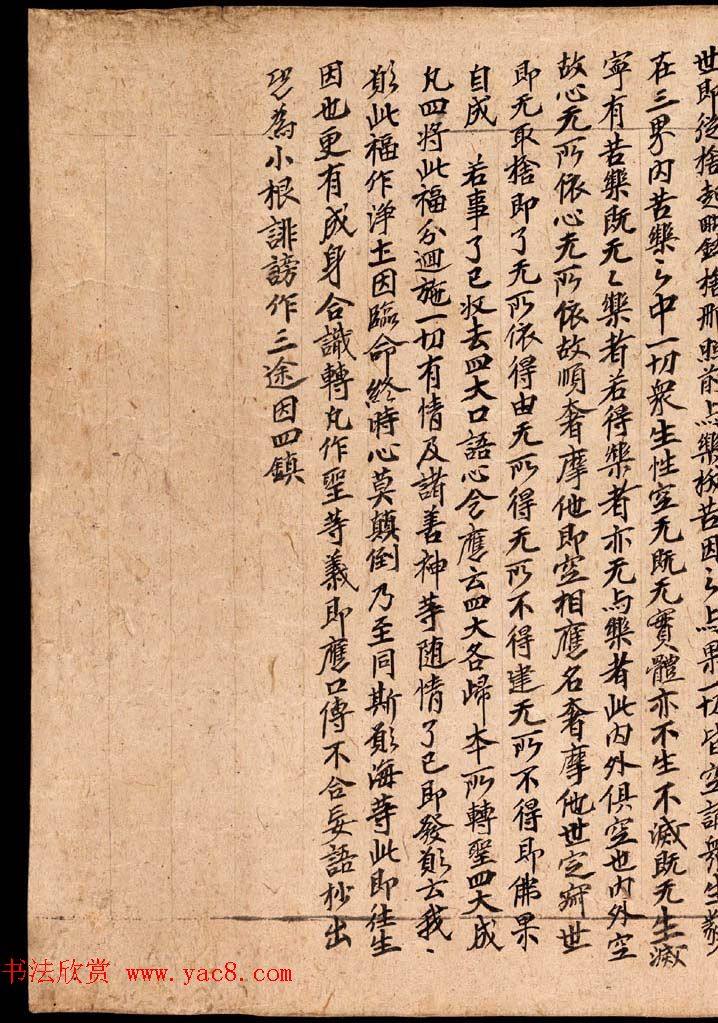 世即從捨起
在三界内苦樂之中一切衆生性空无既无實體亦不生不滅既无生滅
寧有苦樂既无〻樂者若得樂者亦无与樂者此内外俱空也内外空
故心无所依心无所依故順奢摩他即空相應名奢摩他世定
即无取捨即了无所依得由无所得无所不得建无所不得即佛果
自成 若事了已收去四大口語心念應云四大各歸本所轉聖四大成
凡四将此福分迴施一切有情及諸善神等随情了已即發願云我〻
願此福作浄土因臨命終時心莫顛倒乃至同斯願海等此即往生
因也更有成身合識轉凡作聖等義即應口傳不合妄語抄出
恐為小根誹謗作三途因四鎮
书法欣赏 www.yac8.com